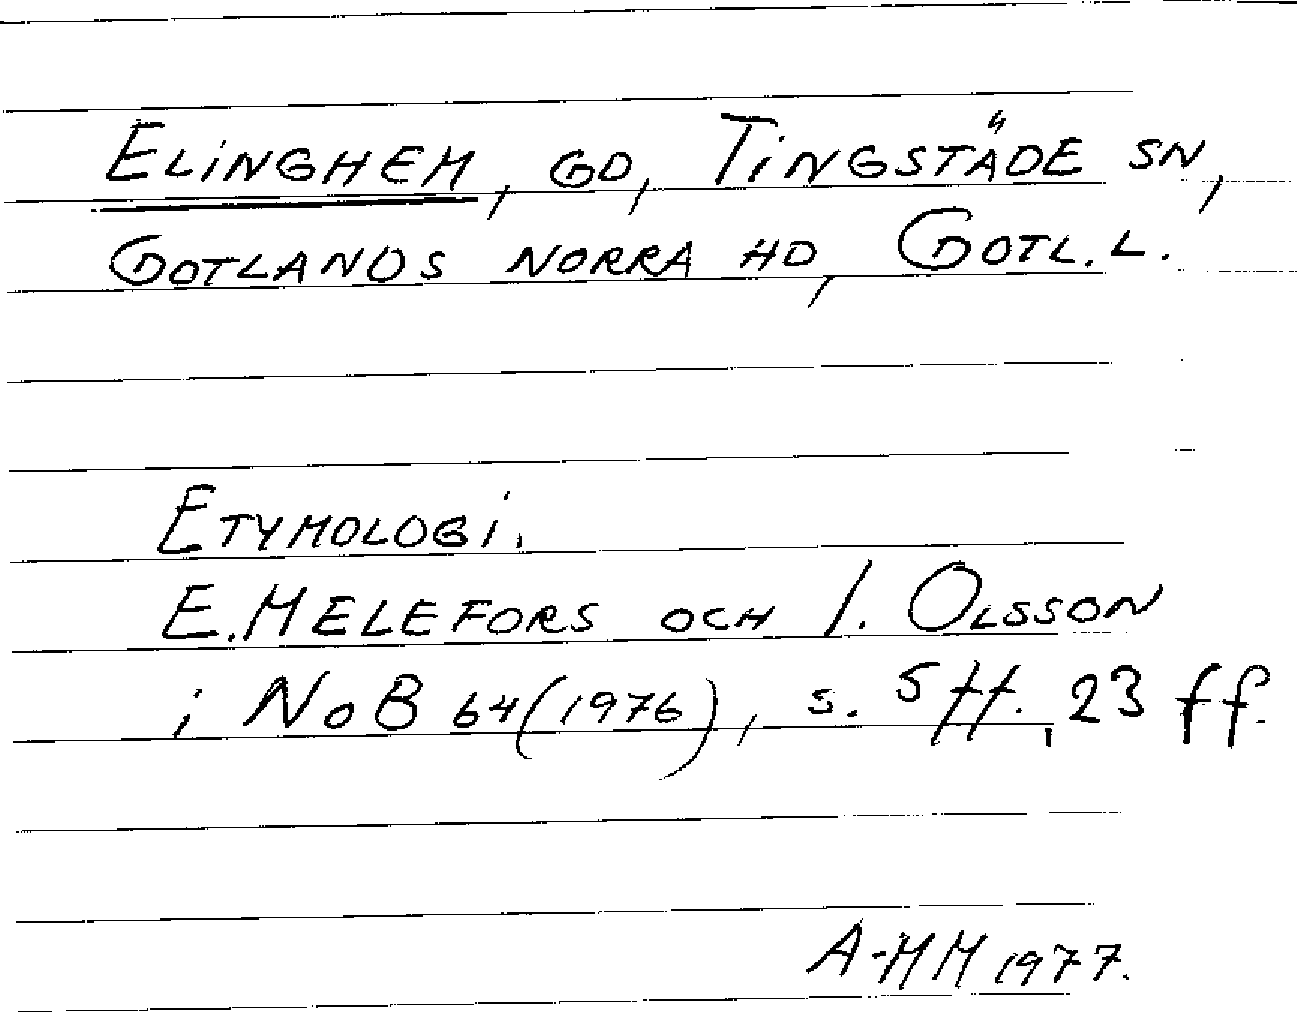 ELINGHEM, GD, TINGSTÄDE SN,
GOTLANDS NORRA HD, GOTL. L.
ETYMOLOGI.
E. MELEFORS OCH I. OLSSON
i NoB 64 (1976), s. 5 ff., 23 ff.
A-MM 1977.